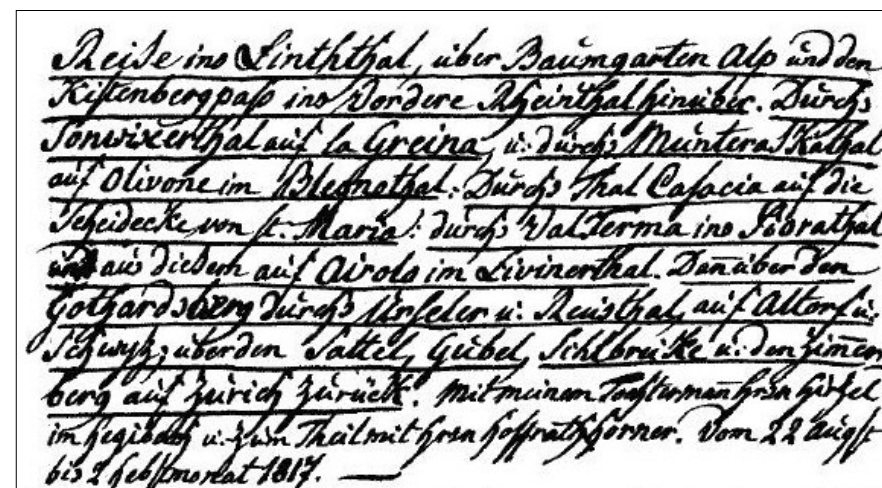 Reise ins Linththal, über Baumgarten Alp und den
Kistenbergpass ins Vordere Rheinthal hinüber. Durchs
Somvixerthal auf la Greina, u: durchs Muntera
auf Olivone im Blegnothal: Durchs Thal Casacia auf die
Scheidecke von St. Maria: durchs Val Terma ins Piorathal
und aus diesem auf Airolo im Livinerthal. Dañ über den
Gothardsberg durchs Urseler u: Reusthal, auf Altorf u:
Schwyz; über den Sattel, Gübel, Sihlbrücke u: den Zim̄er
berg auf Zürich zurück. Mit meinem Tochtermañ Hrsn Hirzel
im Hegibach u: zum Theil mit Hrsn Hoffrath Horner. Vom 22 Augst
bis 2 Hebstmonat 1817.